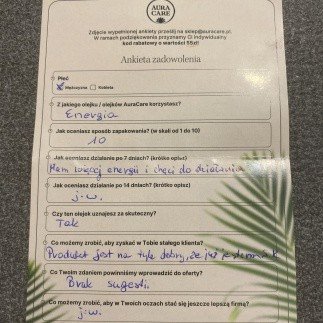 AURA
CARE
Zdjęcie wypełnionej ankiety prześlij na sklep@auracare.pl.
W ramach podziękowania przyznamy Ci indywidualny
kod rabatowy o wartości 55zł!
Ankieta zadowolenia
Płeć
Mężczyzna Kobieta
Z jakiego olejku / olejków AuraCare korzystasz?
Energia
Jak oceniasz sposób zapakowania? (w skali od 1 do 10)
10
Jak oceniasz działanie po 7 dniach? (krótko opisz)
Mam więcej energii i chęci do działania
Jak oceniasz działanie po 14 dniach? (krótko opisz)
j.w.
Czy ten olejek uznajesz za skuteczny?
Tak
Co możemy zrobić, aby zyskać w Tobie stałego klienta?
Produkt jest na tyle dobry, że już jestem
Co Twoim zdaniem powinniśmy wprowadzić do oferty?
Brak sugestii
Co możemy zrobić, aby w Twoich oczach stać się jeszcze lepszą firmą?
j.w.